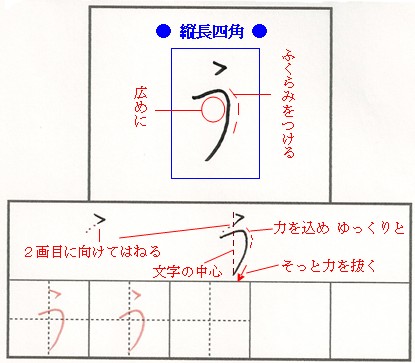 ● 縦長四角 ●
う
ふくらみをつける
広めに
う
力を込め ゆっくりと
2画目に向けてはねる
文字の中心
そっと力を抜く
う う